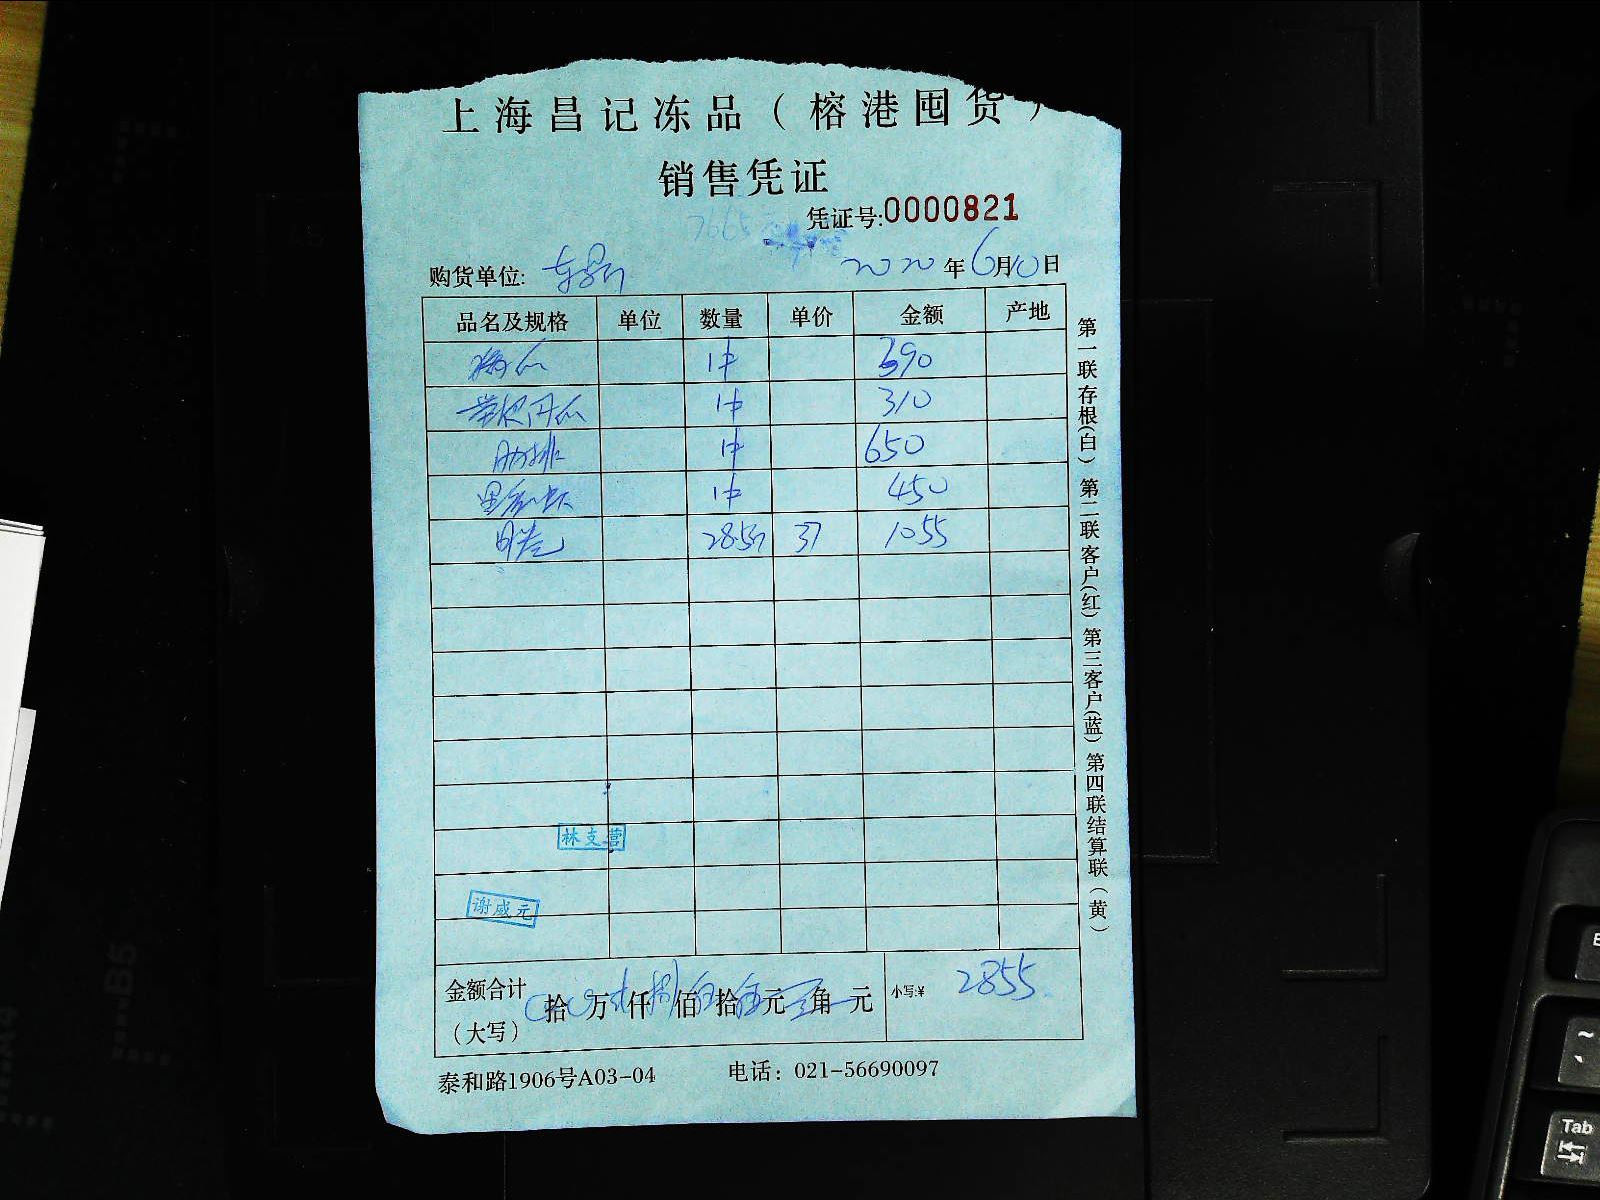 上海昌记冻品（榕港囤货）
销售凭证
凭证号:0000821
购货单位: 2020年6月10日
品名及规格 单位 数量 单价 金额 产地
1件 390
1件 310
肋排 1件 650
1件 450
28.5斤 37 1055
林支营
谢威元
金额合计（大写） 拾 万 仟捌佰 拾 元 角 元 小写:¥ 2855
泰和路1906号A03-04 电话：021-56690097
第一联存根(白) 第二联客户(红) 第三客户(蓝) 第四联结算联(黄)
B5
A4
Tab